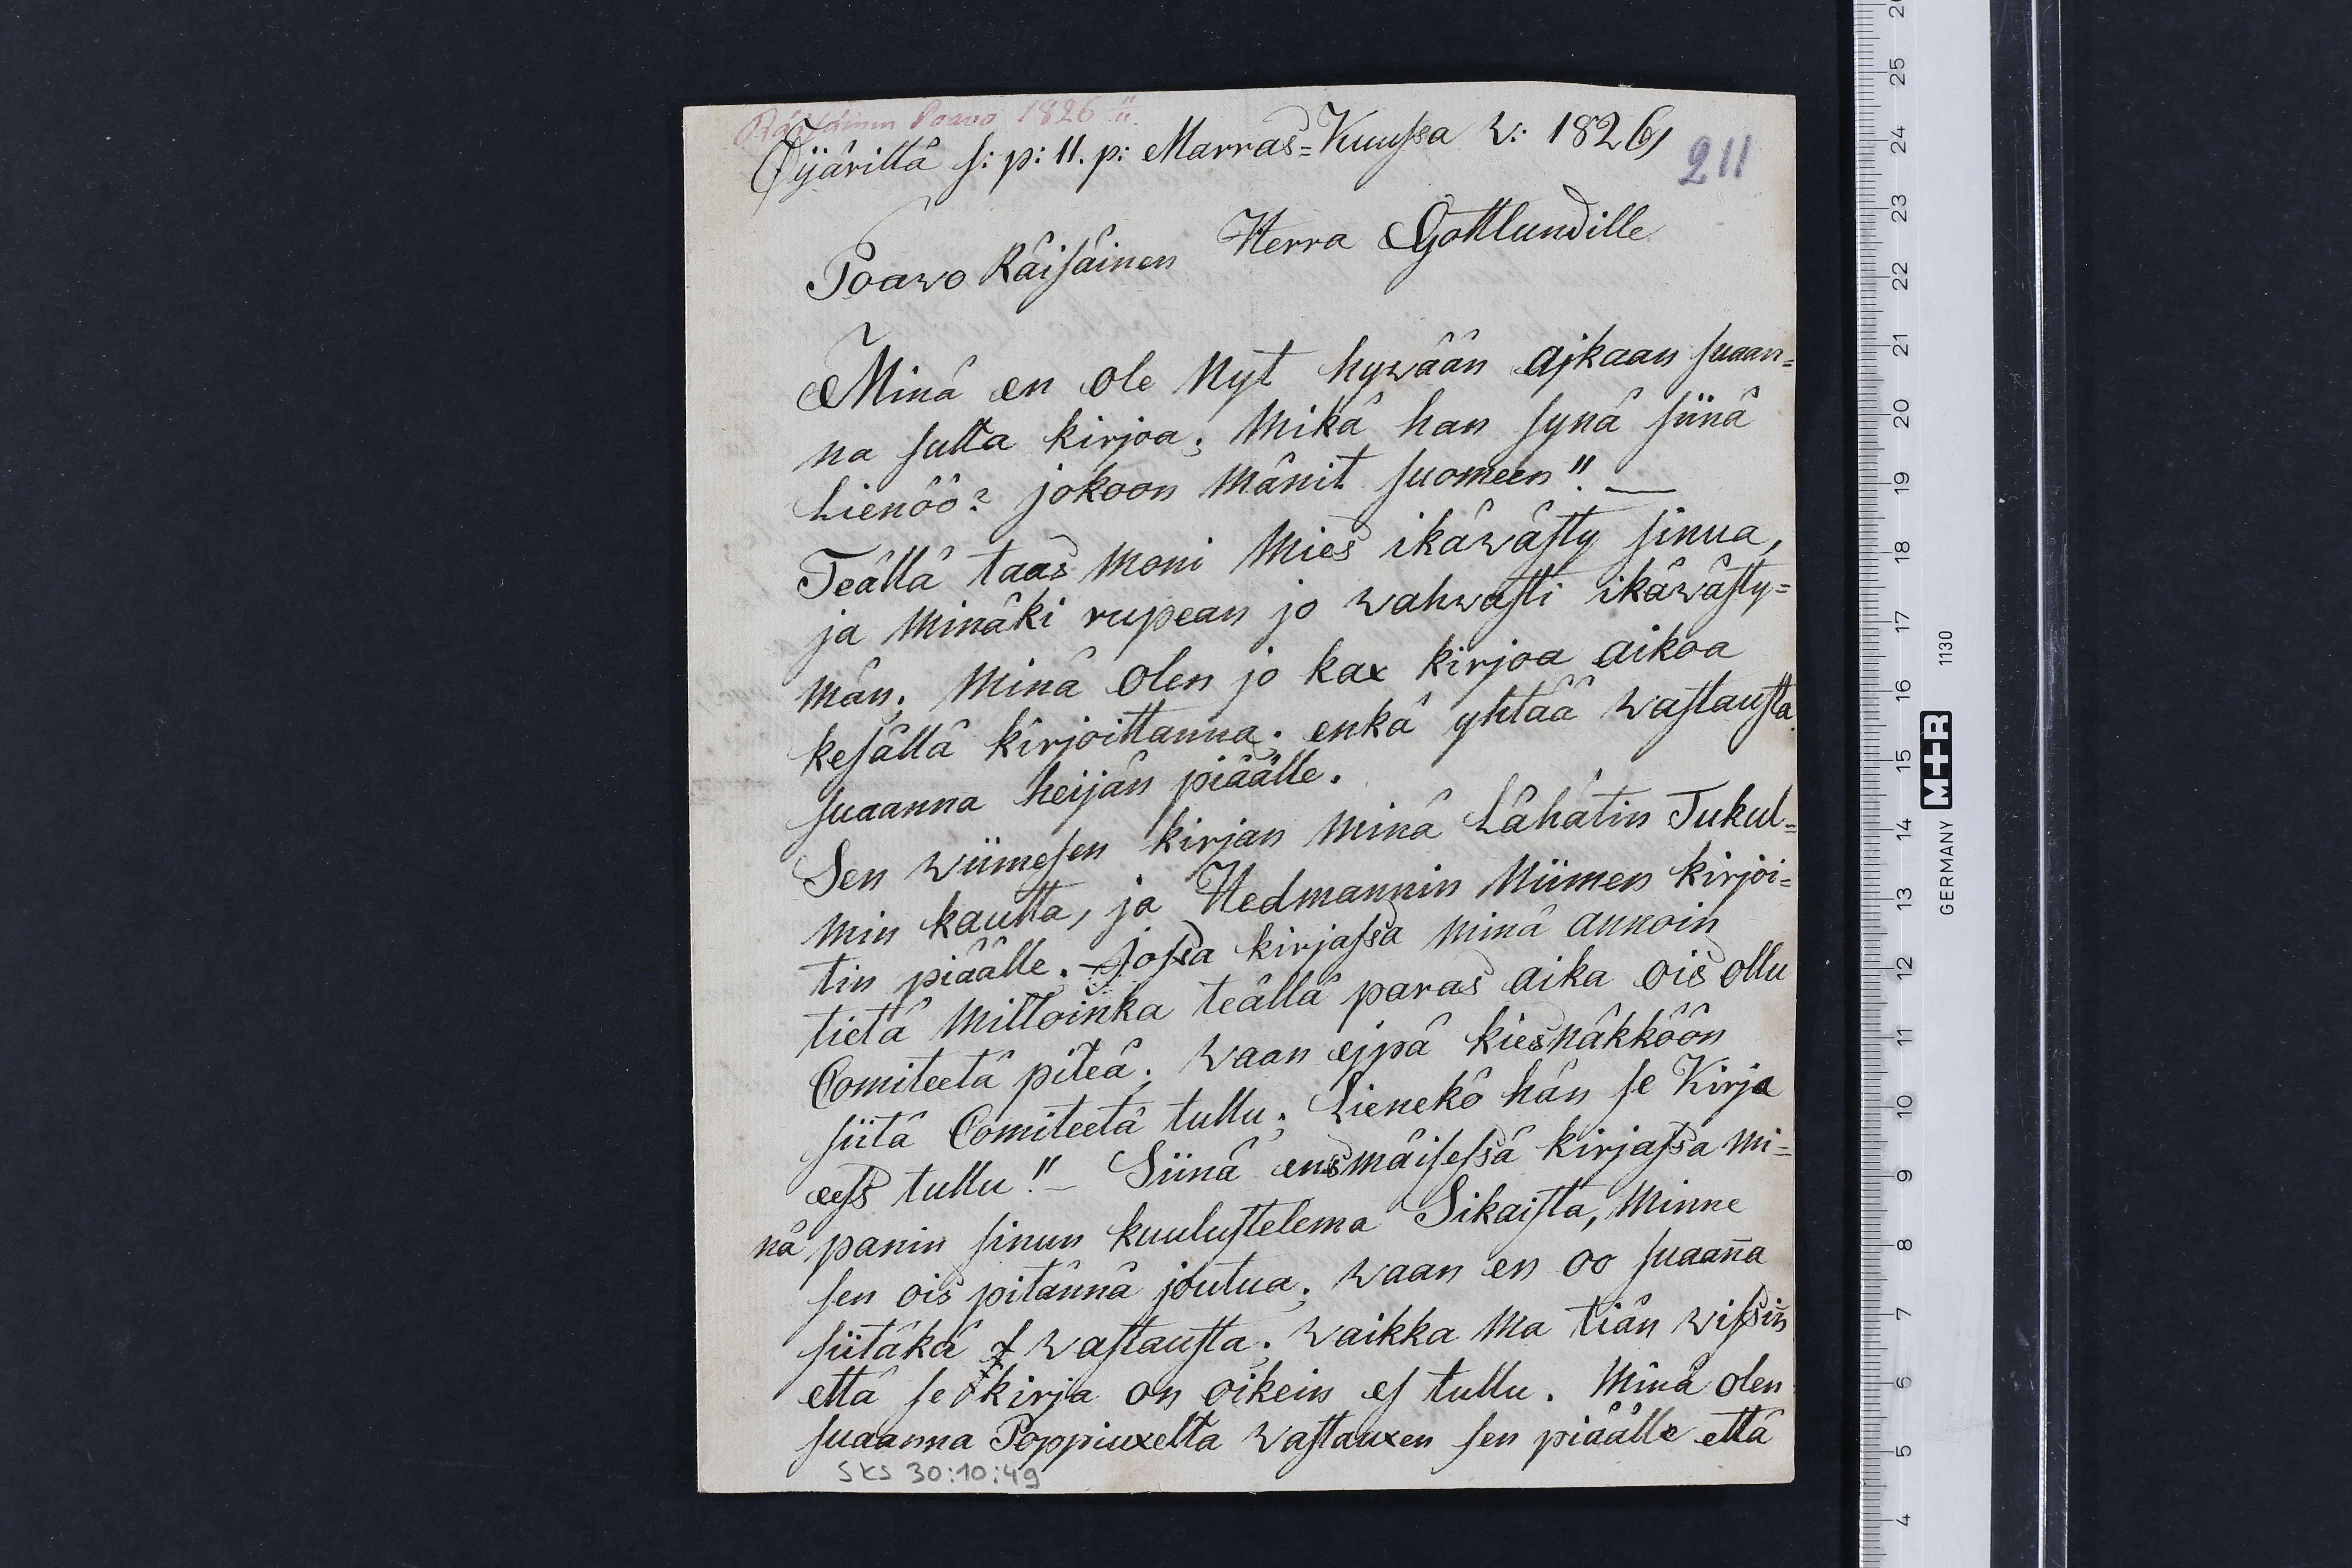 Räisäinen Poavo 1826 II.
Öijärillä s: p: 11. p: Marras=Kuussa v: 1826,
211
Poavo Räisäinen Herra Gottlundille
Minä en ole Nyt hywään ajkaan suaan=
na sulta kirjoa; Mikä han synä siinä
Lienöö? jokoon Mänit suomeen"! —
Teällä taas Moni Mies ikäwästy sinua,
ja Minäki rupean jo wahwasti ikäwästy=
män; Minä olen jo kax kirjoa aikoa
kesällä kirjoittanna; enkä yhtää wastausta
suaanna heijän piäälle.
Sen wiimesen kirjan Minä Lähätin Tukul=
min kautta, ja Hedmannin Niimen kirjoi=
tin piäälle. – Jossa kirjassa Minä annoin
tietä Milloinka teällä paras aika ois ollu
Comiteetä piteä; waan ejpä kiesNäkköön
siitä Comiteetä tullu; Lienekö hän se Kirja
eess tullu"! – Siinä ensmäisessä kirjassa Mi=
nä panin sinun kuulustelema Sikaista, Minne
sen ois pitännä joutua; waan en oo suaan̄a
siitäkä wastausta; waikka Ma tiän wissin̄
että se kirja on oikein es tullu. Minä olen
suaanna Poppiuxelta wastauxen sen piäälle että
SKS 30:10:49
GERMANY M+R 1130
25
24
23
22
21
20
19
18
17
16
15
14
13
12
11
10
9
8
7
6
5
4